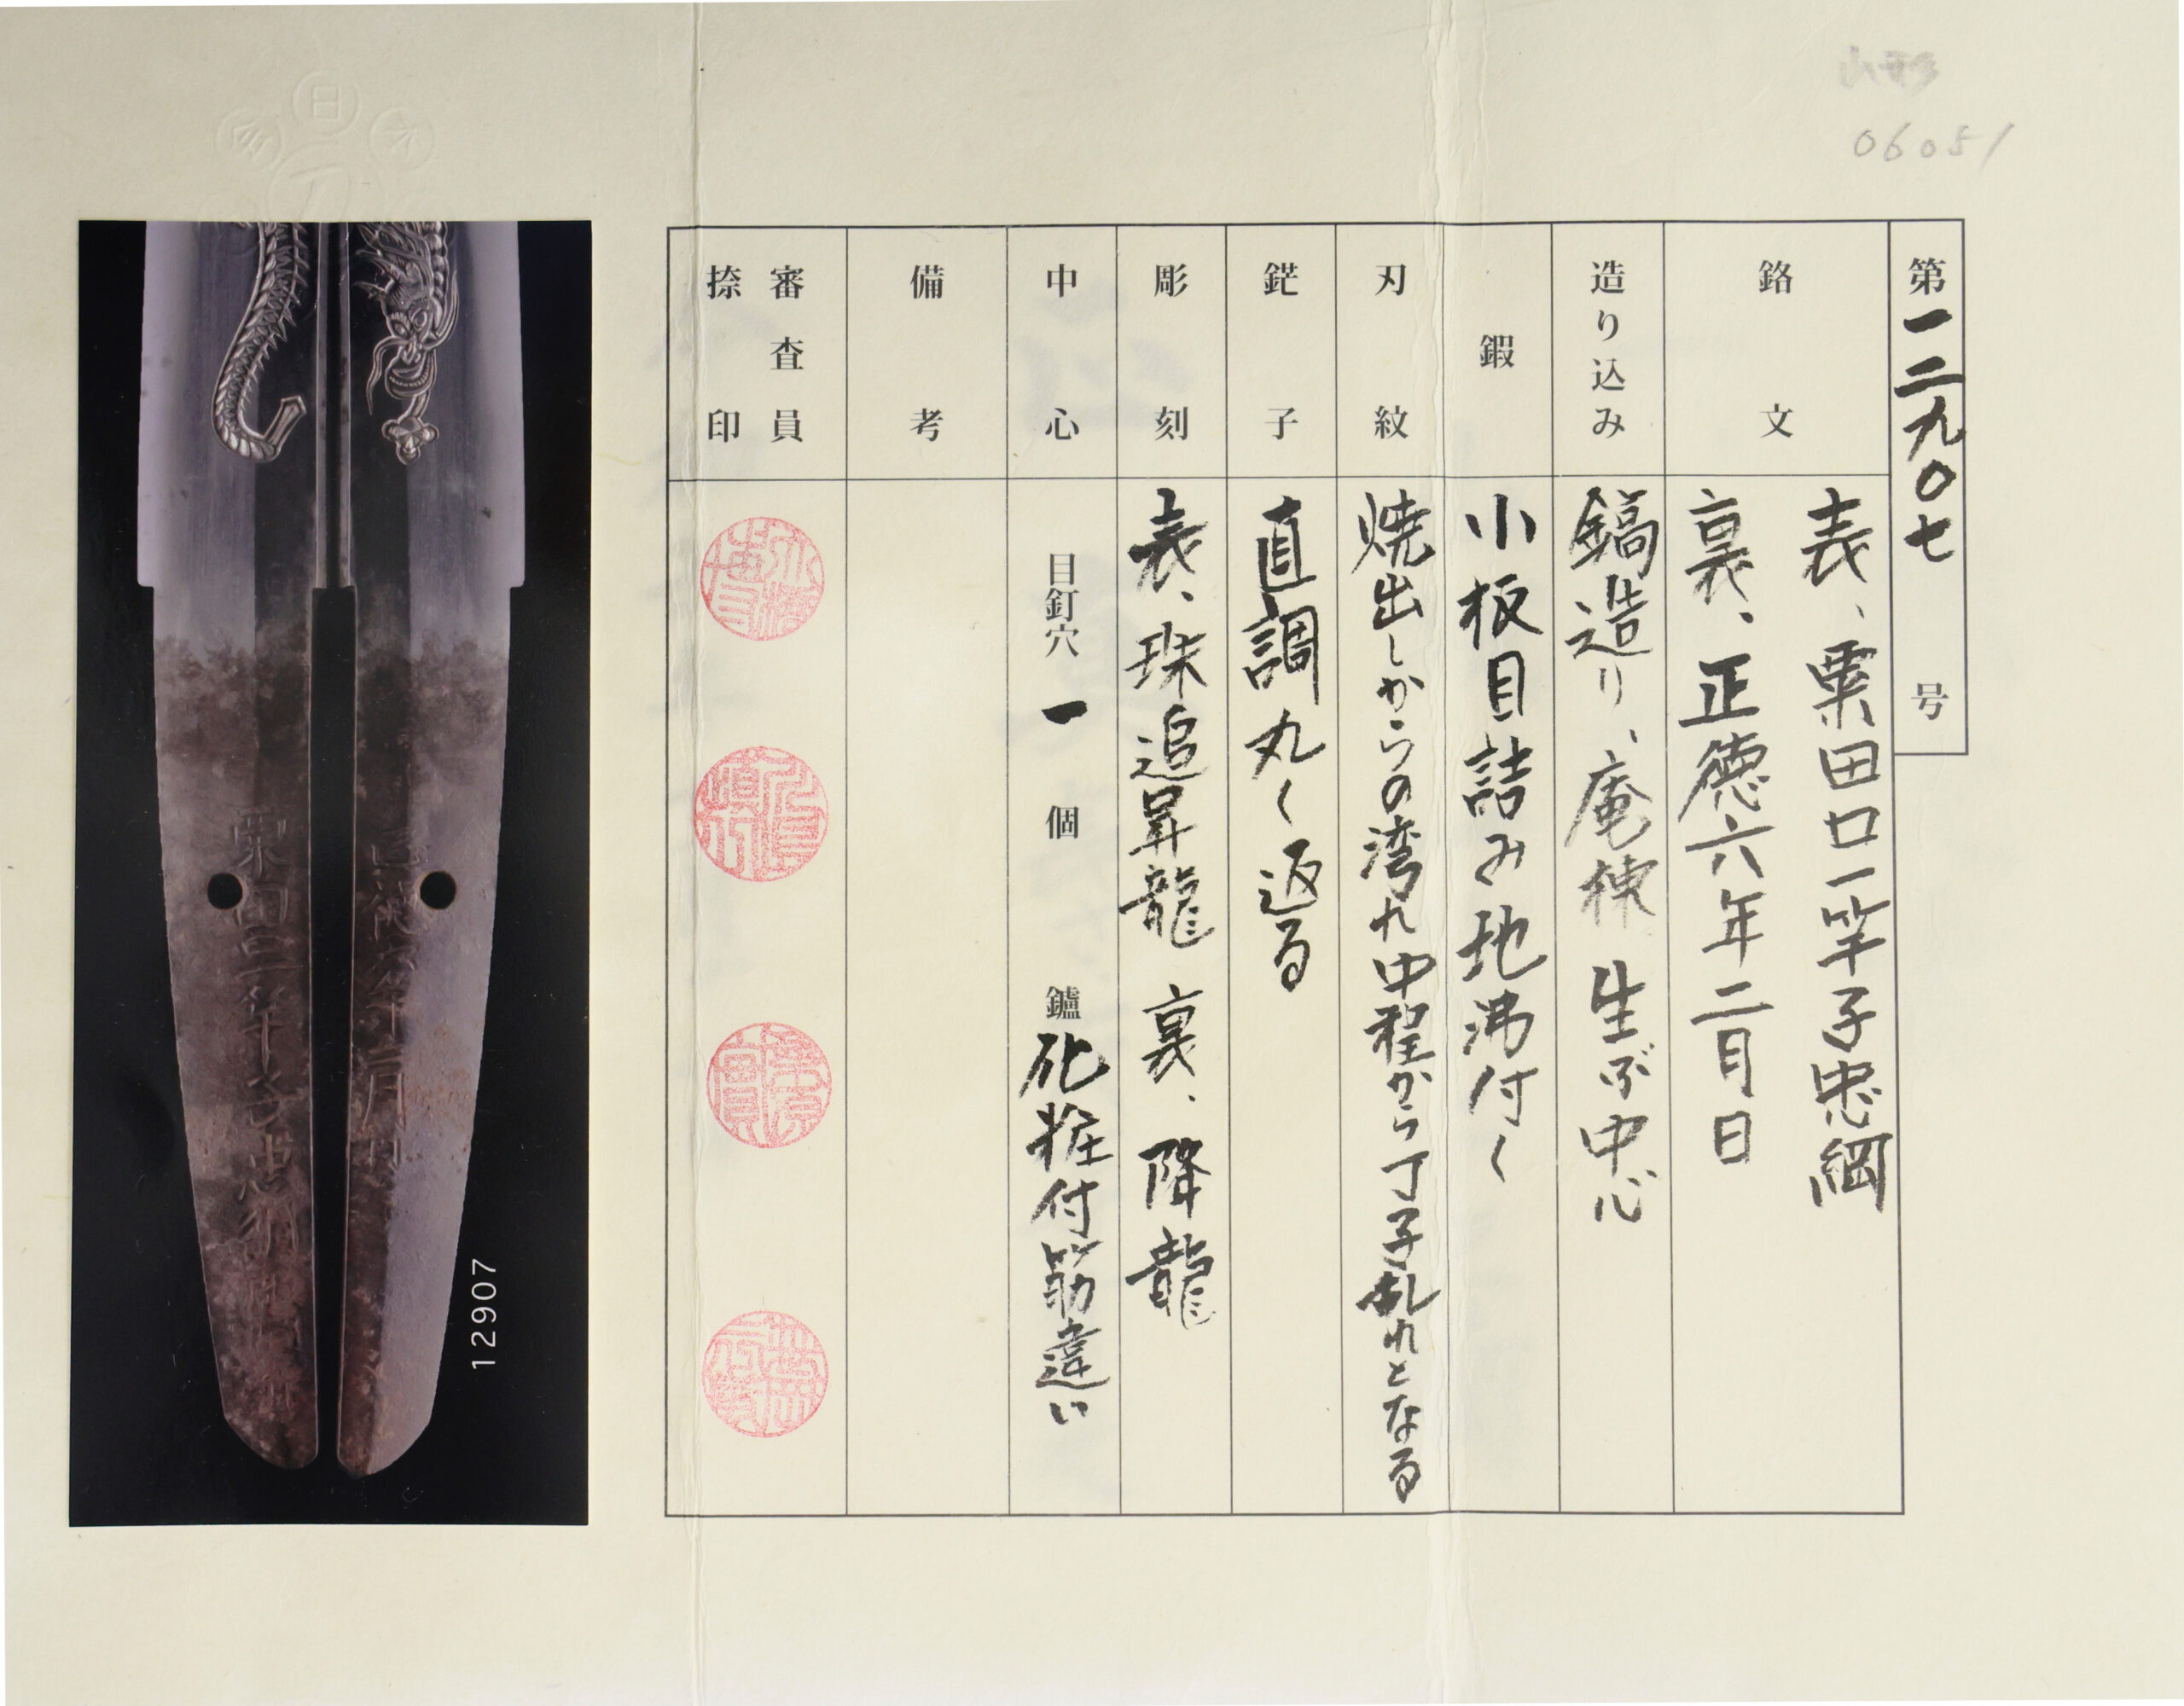 山形
06051
第一二九〇七号
銘文
表、粟田口一竿子忠綱
裏、正徳六年二月日
造り込み
鎬造り、庵棟 生ぶ中心
鍜
小板目詰み地沸付く
刃紋
焼出しからの湾れ中程から丁子乱れとなる
鋩子
直調丸く返る
彫刻
表、珠追昇龍 裏、降龍
中心
目釘穴 一 個 鑪 化粧付筋違い
備考
審査員
捺印
粟田口一竿子忠綱
12907